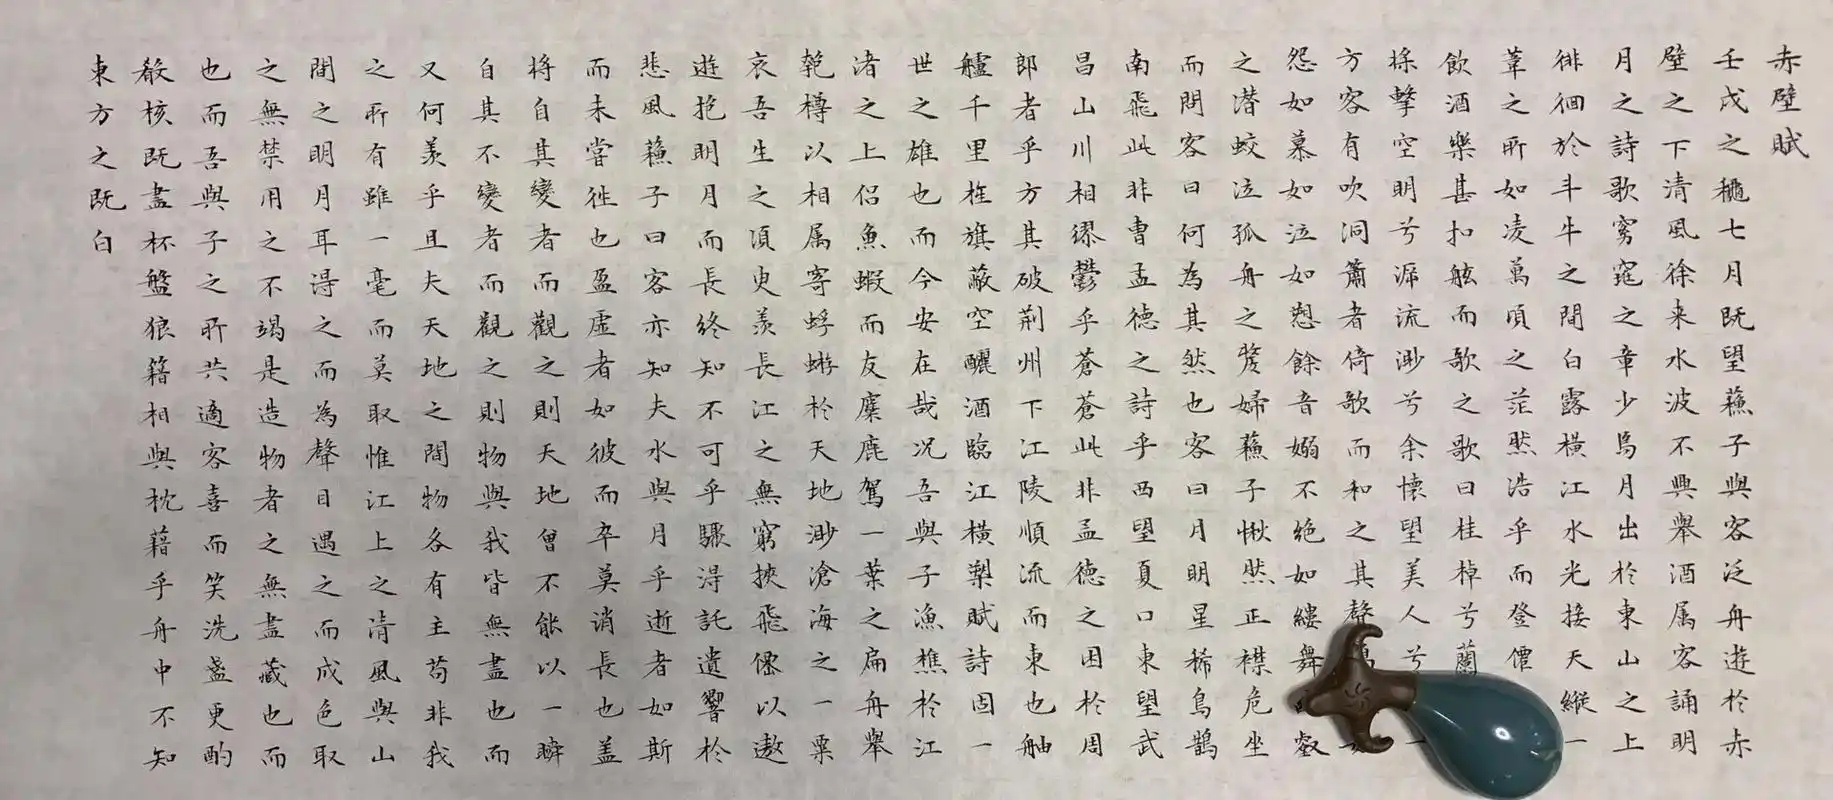 赤壁賦
壬戌之穐七月既望蘓子與客泛舟遊於赤
壁之下清風徐来水波不興舉酒属客誦明
月之詩歌窈窕之章少焉月出於東山之上
徘徊於斗牛之間白露橫江水光接天縱一
葦之所如凌萬頃之茫然浩乎而登僊
飲酒樂甚扣舷而歌之歌曰桂棹兮蘭
採擊空明兮泝流渺兮余懷望美人兮一
方客有吹洞簫者倚歌而和之其聲
怨如慕如泣如愬餘音嫋不絕如縷舞壑
之潜蛟泣孤舟之嫠婦蘓子愀然正襟危坐
而問客曰何為其然也客曰月明星稀烏鵲
南飛此非曹孟德之詩乎西望夏口東望武
昌山川相繆鬱乎蒼蒼此非孟德之困於周
郎者乎方其破荆州下江陵順流而東也舳
艫千里旌旗蔽空釃酒臨江橫槊賦詩固一
世之雄也而今安在哉况吾與子漁樵於江
渚之上侣魚蝦而友麋鹿駕一葉之扁舟舉
匏樽以相属寄蜉蝣於天地渺滄海之一粟
哀吾生之須臾羨長江之無窮挾飛僊以遨
遊抱明月而長終知不可乎驟得託遺響於
悲風蘓子曰客亦知夫水與月乎逝者如斯
而未嘗往也盈虛者如彼而卒莫消長也盖
将自其變者而觀之則天地曾不能以一瞬
自其不變者而觀之則物與我皆無盡也而
又何羨乎且夫天地之間物各有主苟非我
之所有雖一毫而莫取惟江上之清風與山
間之明月耳得之而為聲目遇之而成色取
之無禁用之不竭是造物者之無盡藏也而
也而吾與子之所共適客喜而笑洗盞更酌
殽核既盡杯盤狼籍相與枕藉乎舟中不知
東方之既白